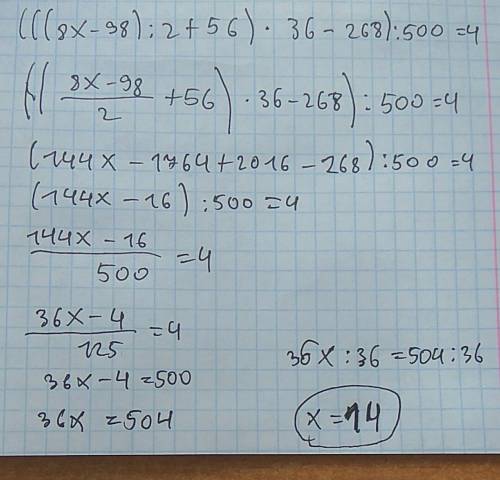 (((8x-98):2+56)· 36-268):500=4
((\frac{8x-98}{2}+56)·36-268):500=4
(144x-1764+2016-268):500=4
(144x-16):500=4
\frac{144x-16}{500}=4
\frac{36x-4}{125}=4
36x-4=500
36x=504
36x:36=504:36
x=14